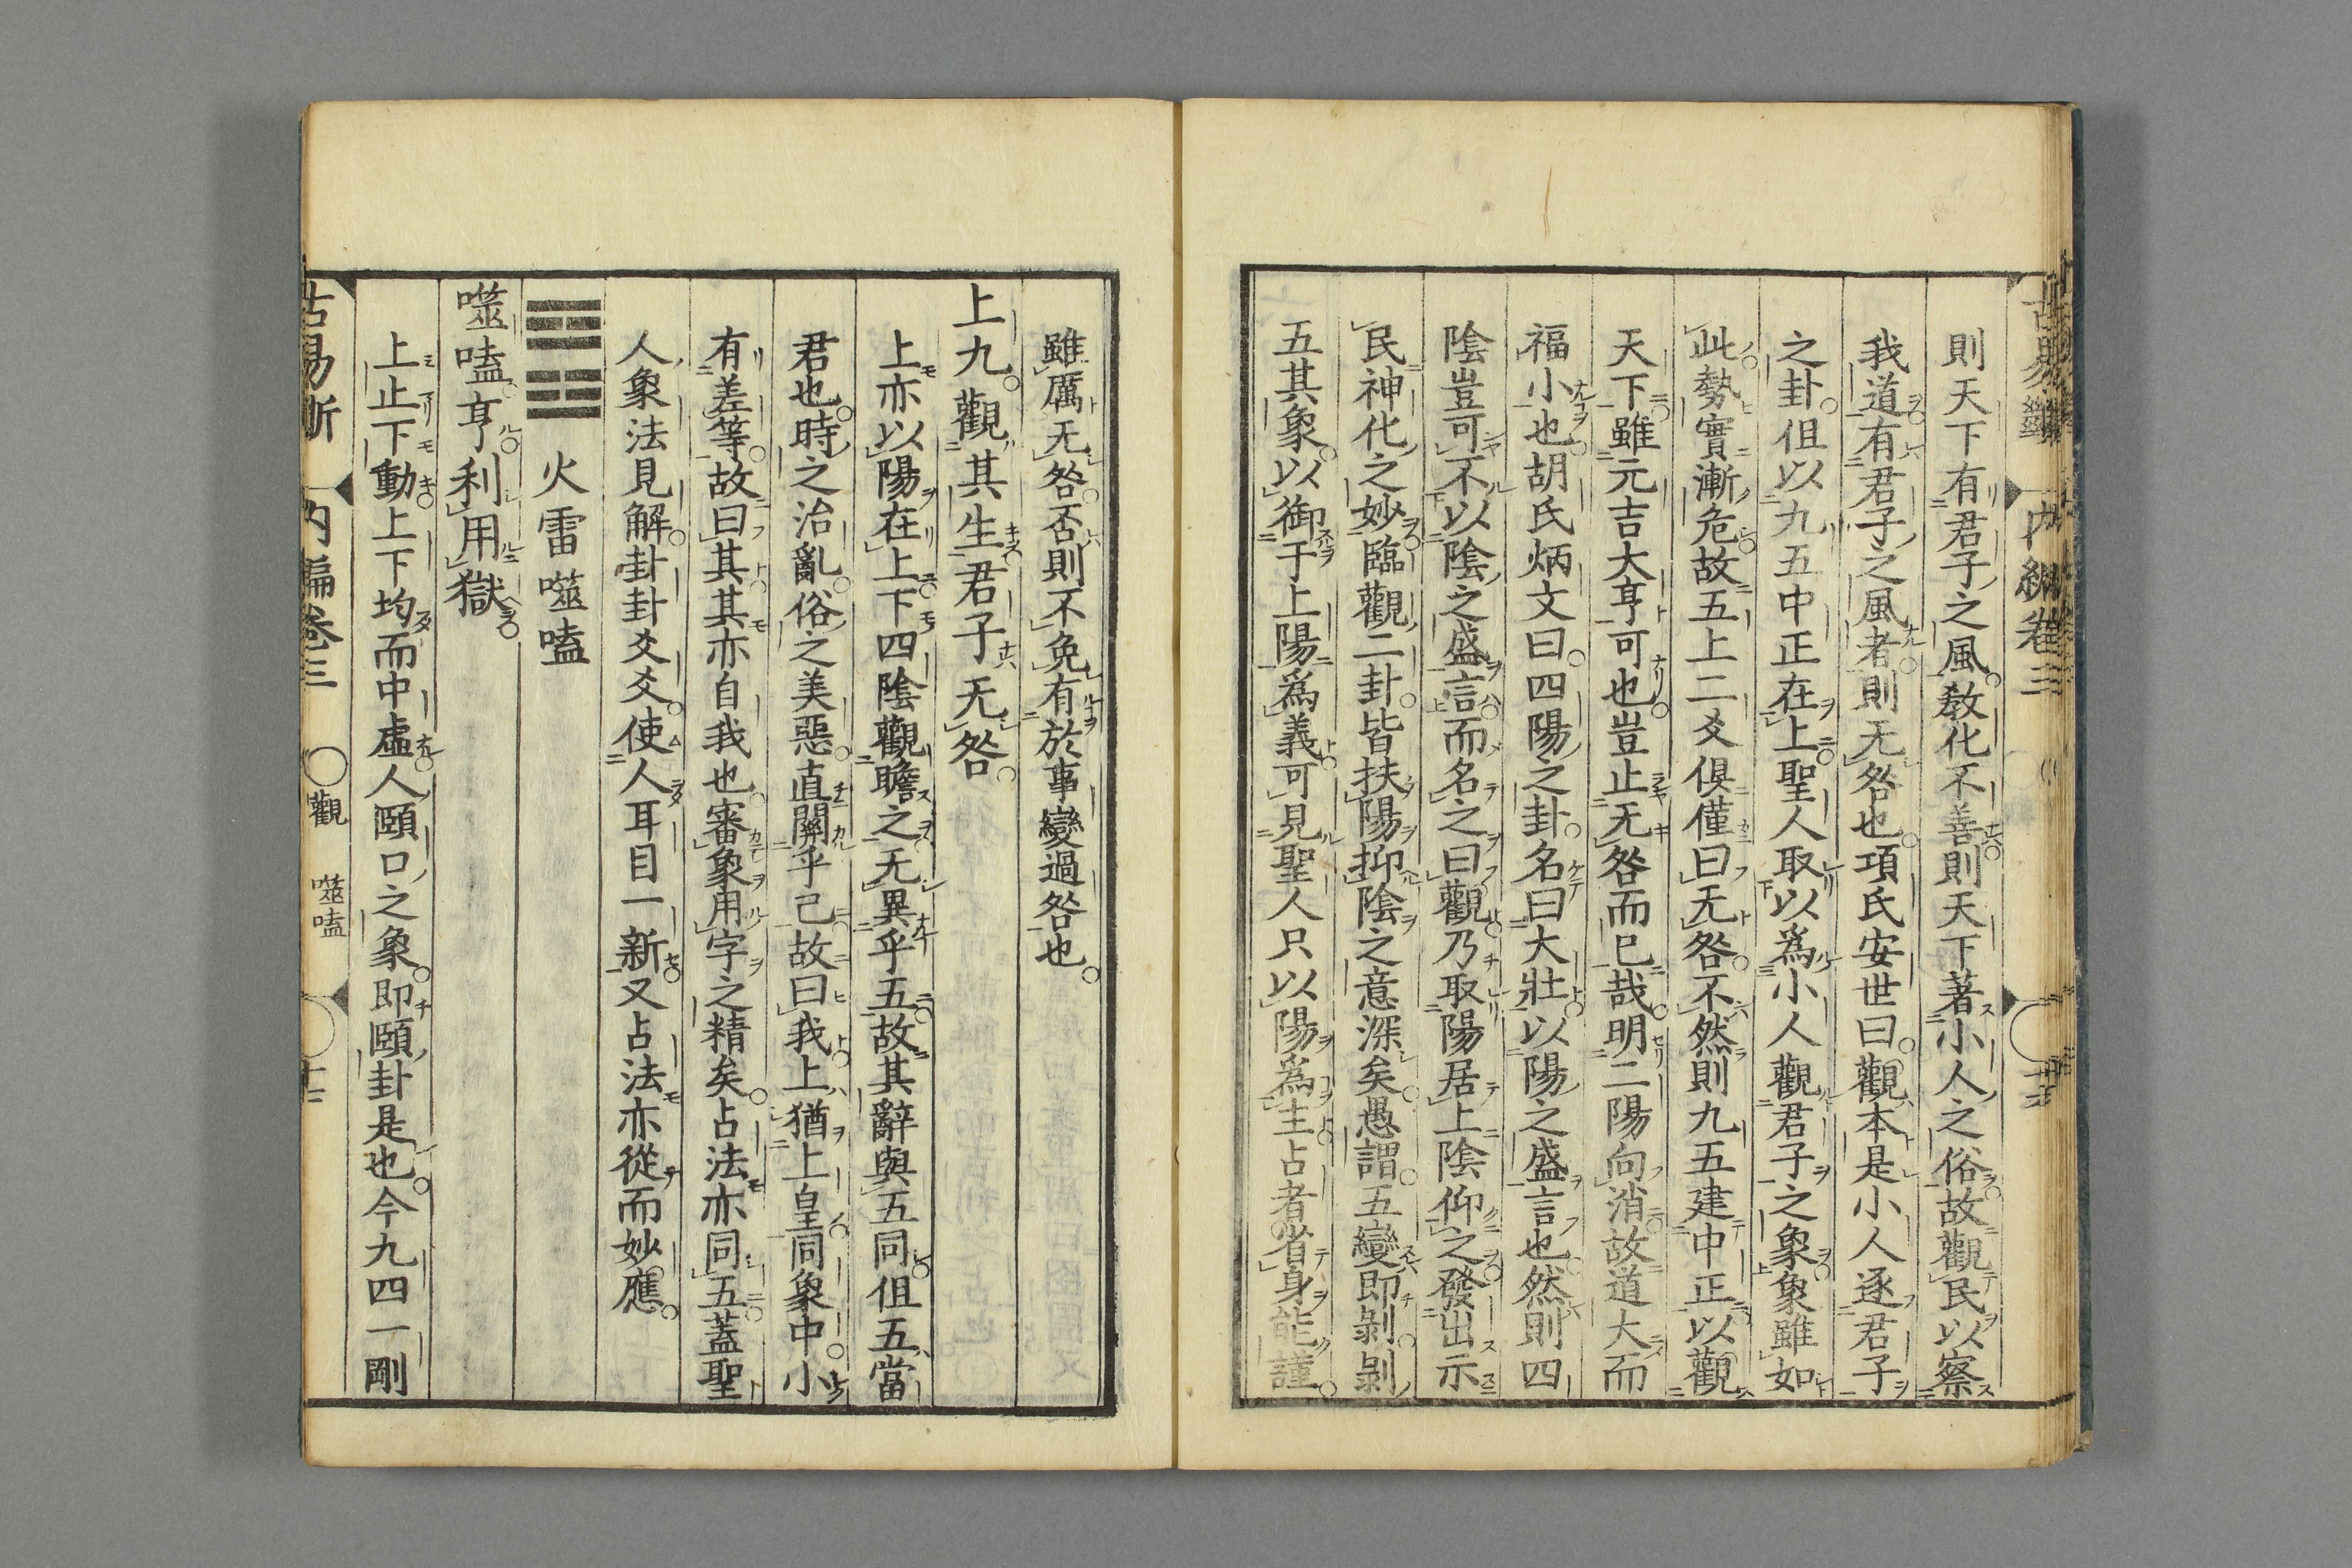 則天下有君子之風教化不善則天下著小人之俗故觀民以察
我道有君子之風者則无咎也項氏安世曰觀本是小人逐君子
之卦但以九五中正在上聖人取以爲小人觀君子之象象雖如
此勢實漸危故五上二爻俱僅曰无咎不然則九五建中正以觀
天下雖元吉大亨可也豈止无咎而已哉明二陽向消故道大而
福小也胡氏炳文曰四陽之卦名曰大壯以陽之盛言也然則四
陰豈可不以陰之盛言而名之曰觀乃取陽居上陰仰之發出示
民神化之妙臨觀二卦皆扶陽抑陰之意深矣愚謂五變即剝剝
五其象以御于上陽爲義可見聖人只以陽爲主占者省身能謹
雖厲无咎否則不免有於事變過咎也
上九觀其生君子无咎
上亦以陽在上下四陰觀瞻之无異乎五故其辭與五同但五當
君也時之治亂俗之美惡直關乎己故曰我上猶上皇同象中小
有差等故曰其其亦自我也審象用字之精矣占法亦同五蓋聖
人象法見解卦卦爻爻使人耳目一新又占法亦從而妙應
火雷噬嗑
噬嗑亨利用獄
上止下動上下均而中虛人頤口之象即頤卦是也今九四一剛
古易斷 內編卷三 〇觀 噬嗑 十二